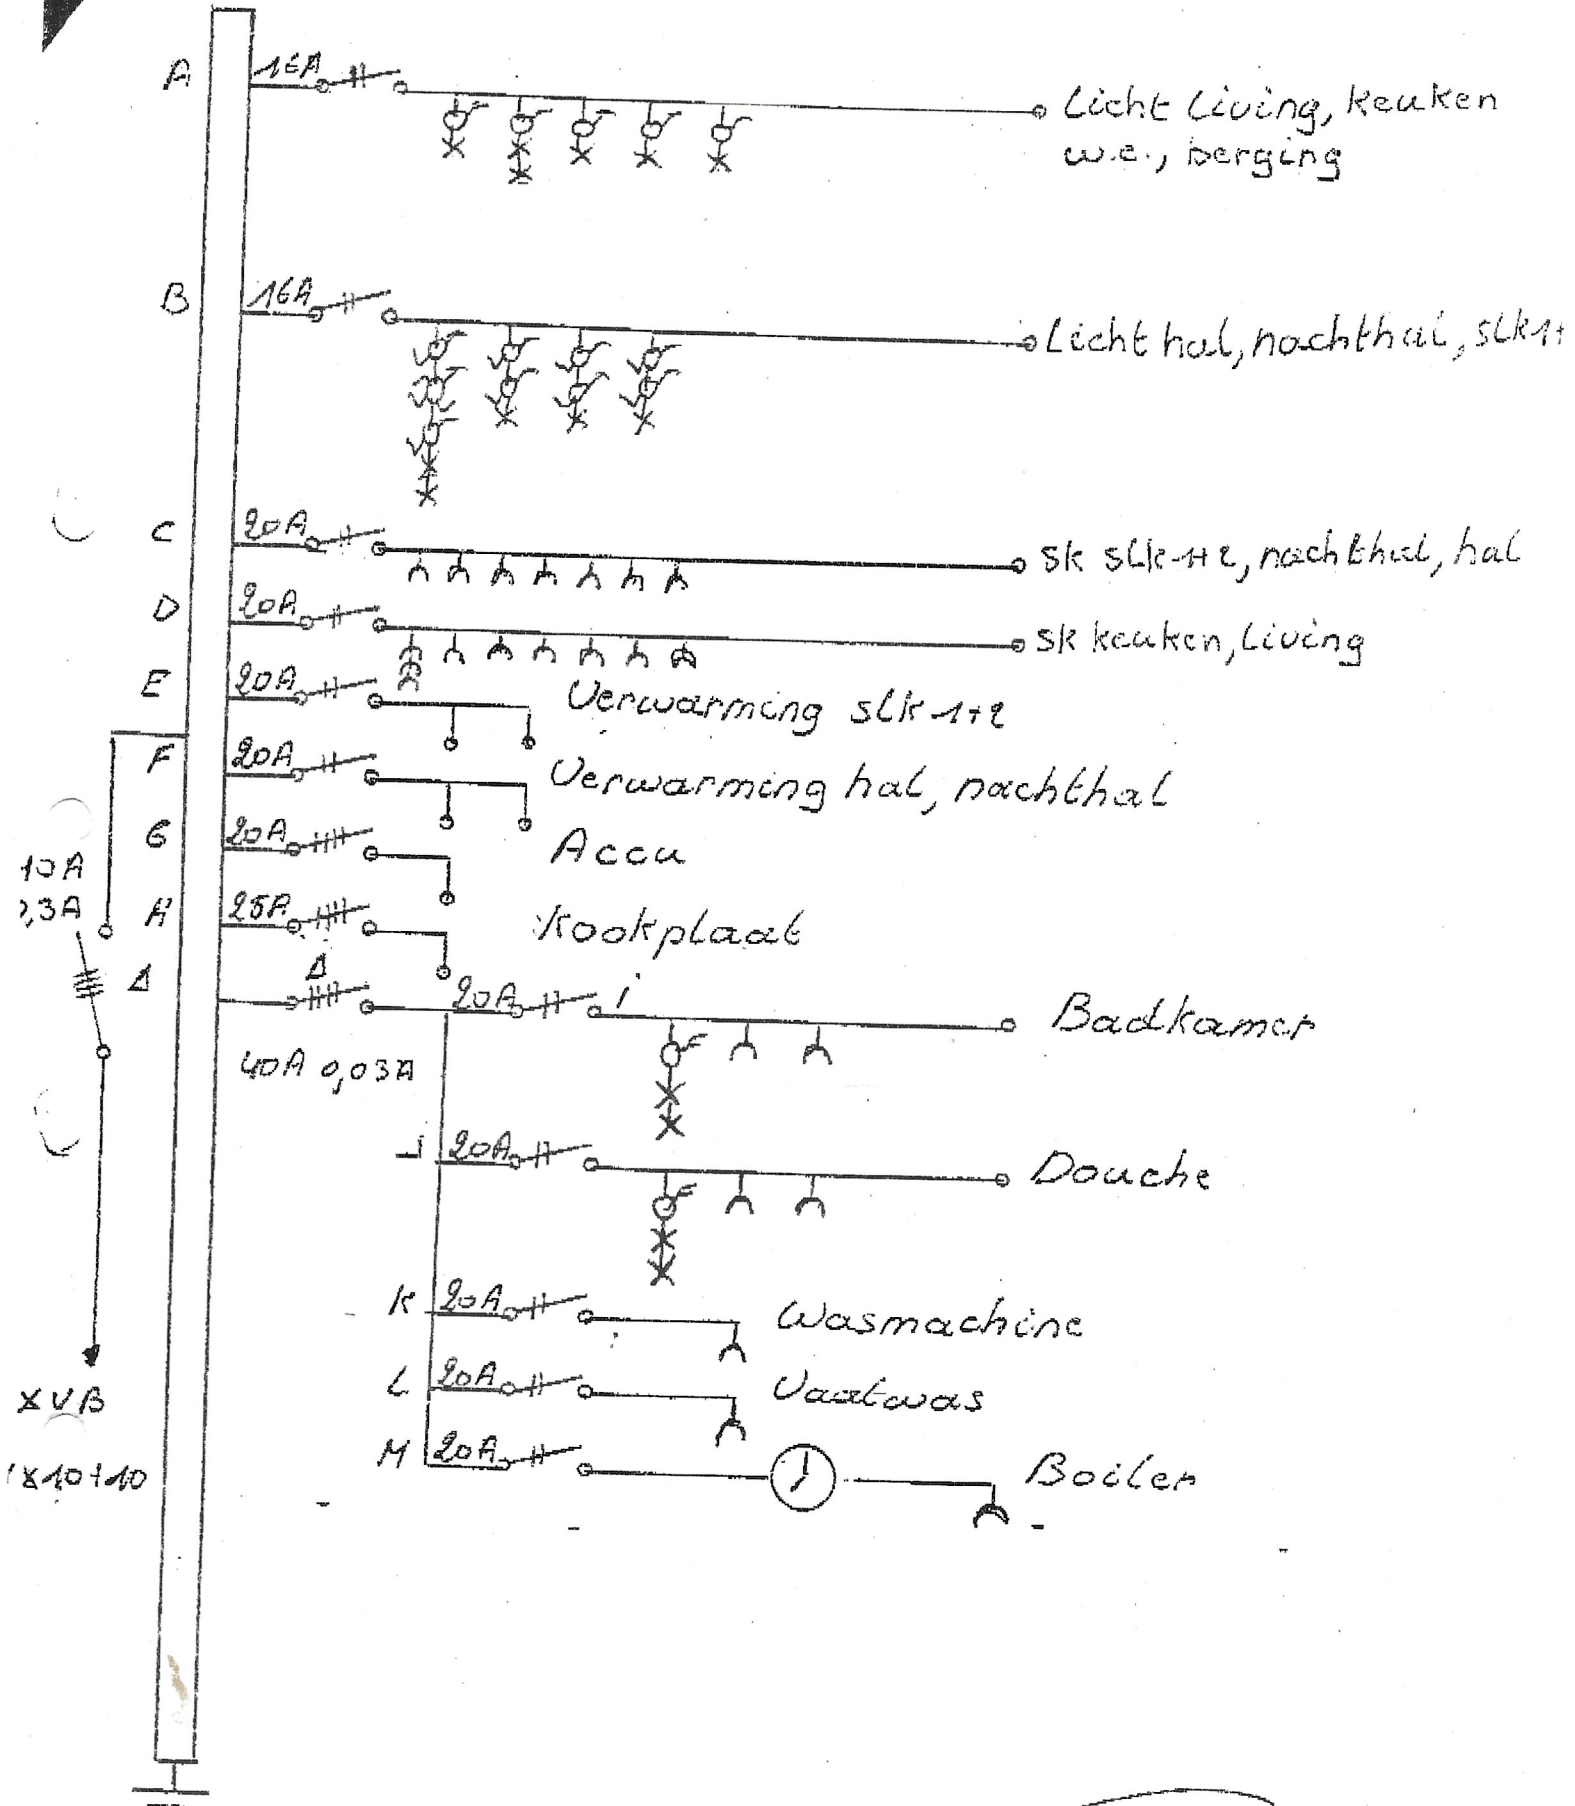 A 16A Licht living, keuken
w.c., berging
B 16A Licht hal, nachthal, slk1+
C 20A sk slk 1+2, nachthal, hal
D 20A sk keuken, living
E 20A Verwarming slk 1+2
F 20A Verwarming hal, nachthal
G 20A Accu
10A
,3A
H 25A Kookplaat
Δ Δ 20A i Badkamer
40A 0,03A
J 20A Douche
K 20A Wasmachine
L 20A Vaatwas
XVB
M 20A Boiler
x10+10